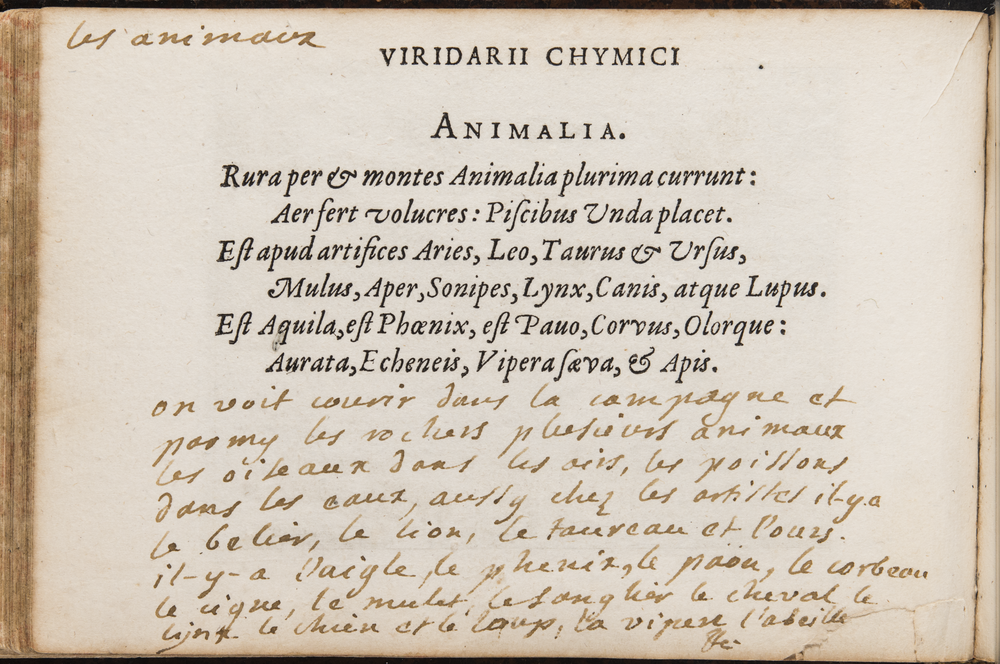 les animaux
VIRIDARII CHYMICI
ANIMALIA.
Rura per & montes Animalia plurima currunt:
Aer fert volucres: Piſcibus Unda placet.
Eſt apud artifices Aries, Leo, Taurus & Urſus,
Mulus, Aper, Sonipes, Lynx, Canis, atque Lupus.
Eſt Aquila, eſt Phœnix, eſt Pavo, Corvus, Olorque:
Aurata, Echeneis, Vipera ſæva, & Apis.
on voit courir dans la campagne et
parmy les rochers plusieurs animaux
les oiseaux dans les airs, les poissons
dans les eaux, aussy chez les artistes il-y-a
le belier, le lion, le taureau et l'ours.
il-y-a l'aigle, le phenix, le paon, le corbeau
le cigne, le mulet, le sanglier le cheval le
lynx le chien et le loup, la vipere l'abeille
&c